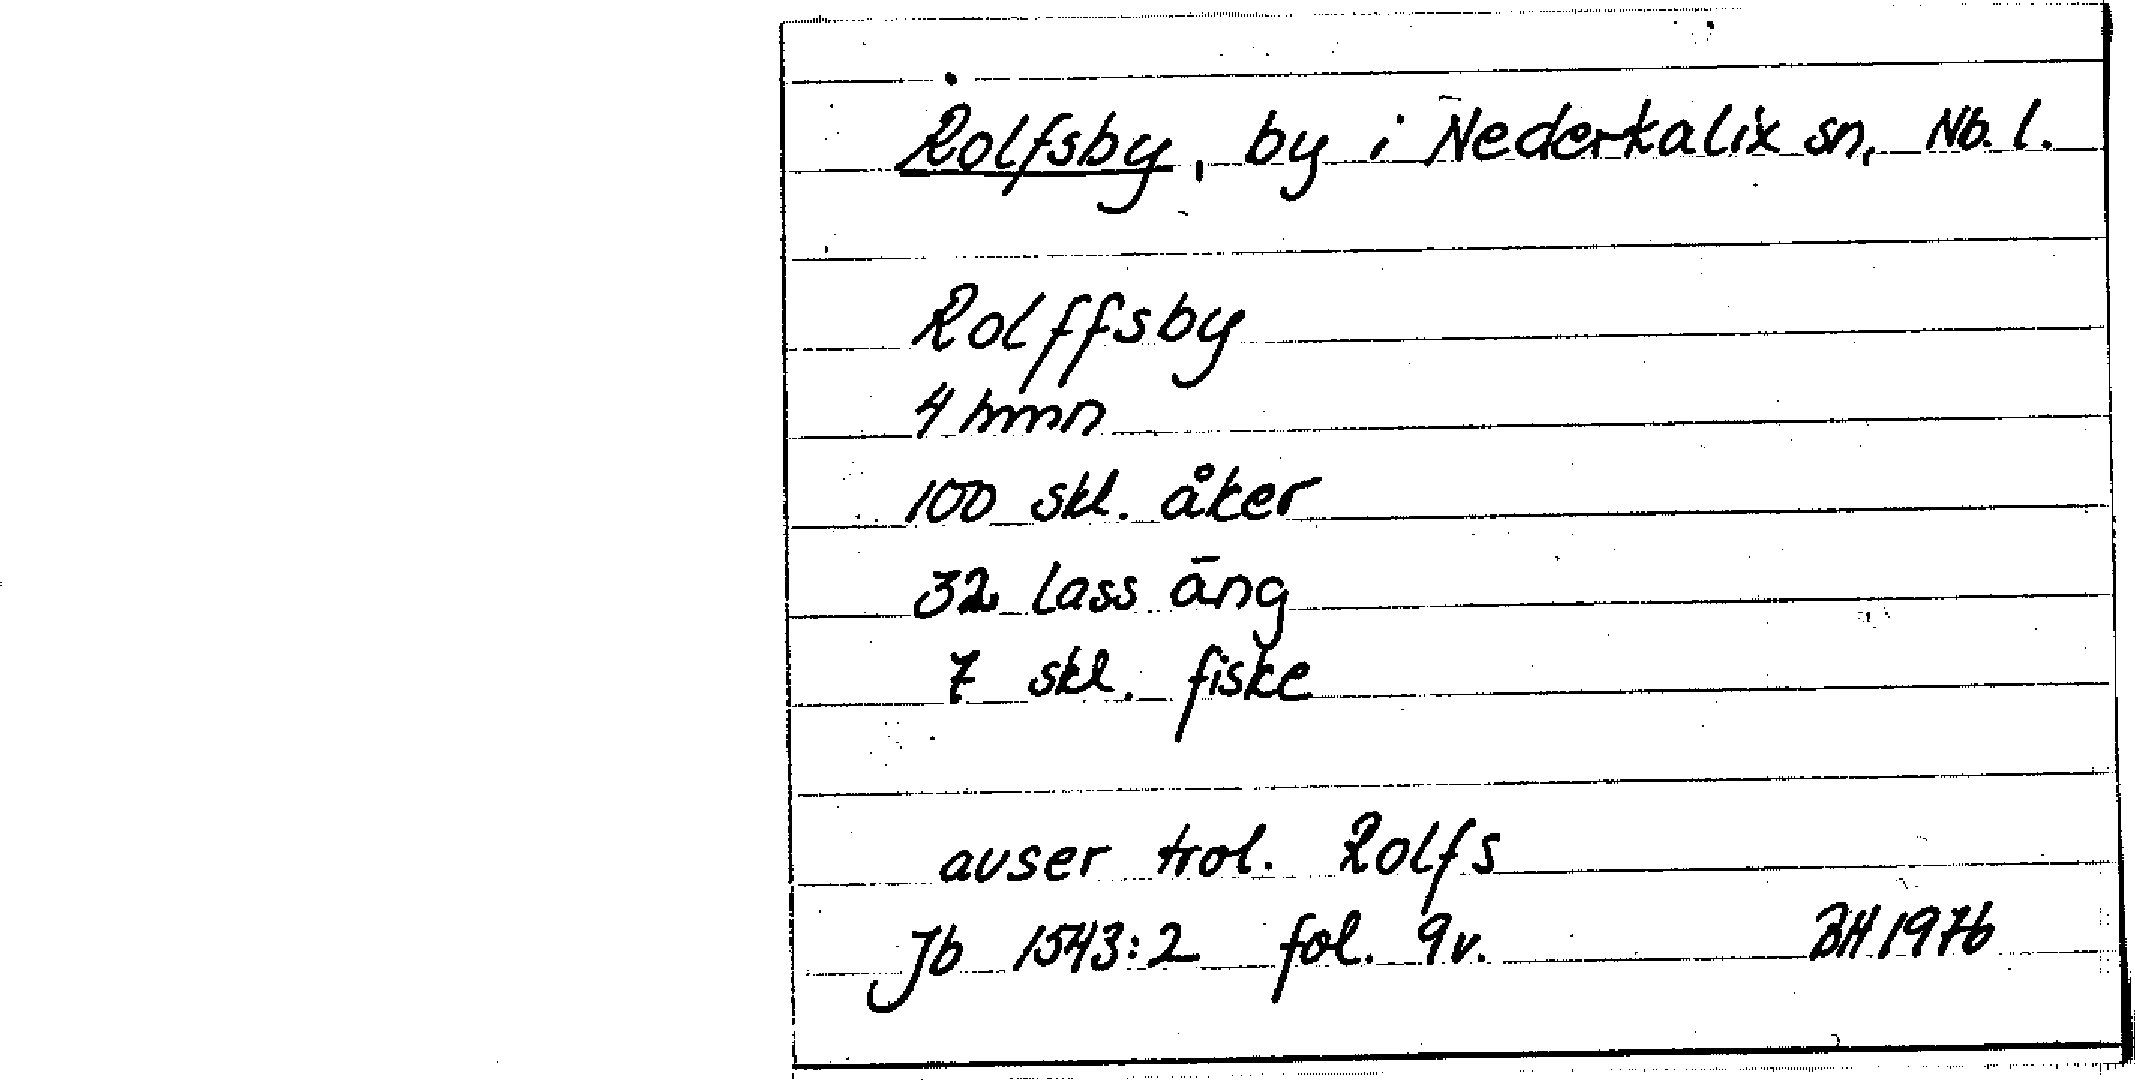 Rolfsby, by i Nederkalix sn, Nb. l.
Rolffsby
4 hmn
100 skl. åker
32 lass äng
7 skl. fiske
avser trol. Rolfs
Jb 1543:2 fol. 9v. BH 1976